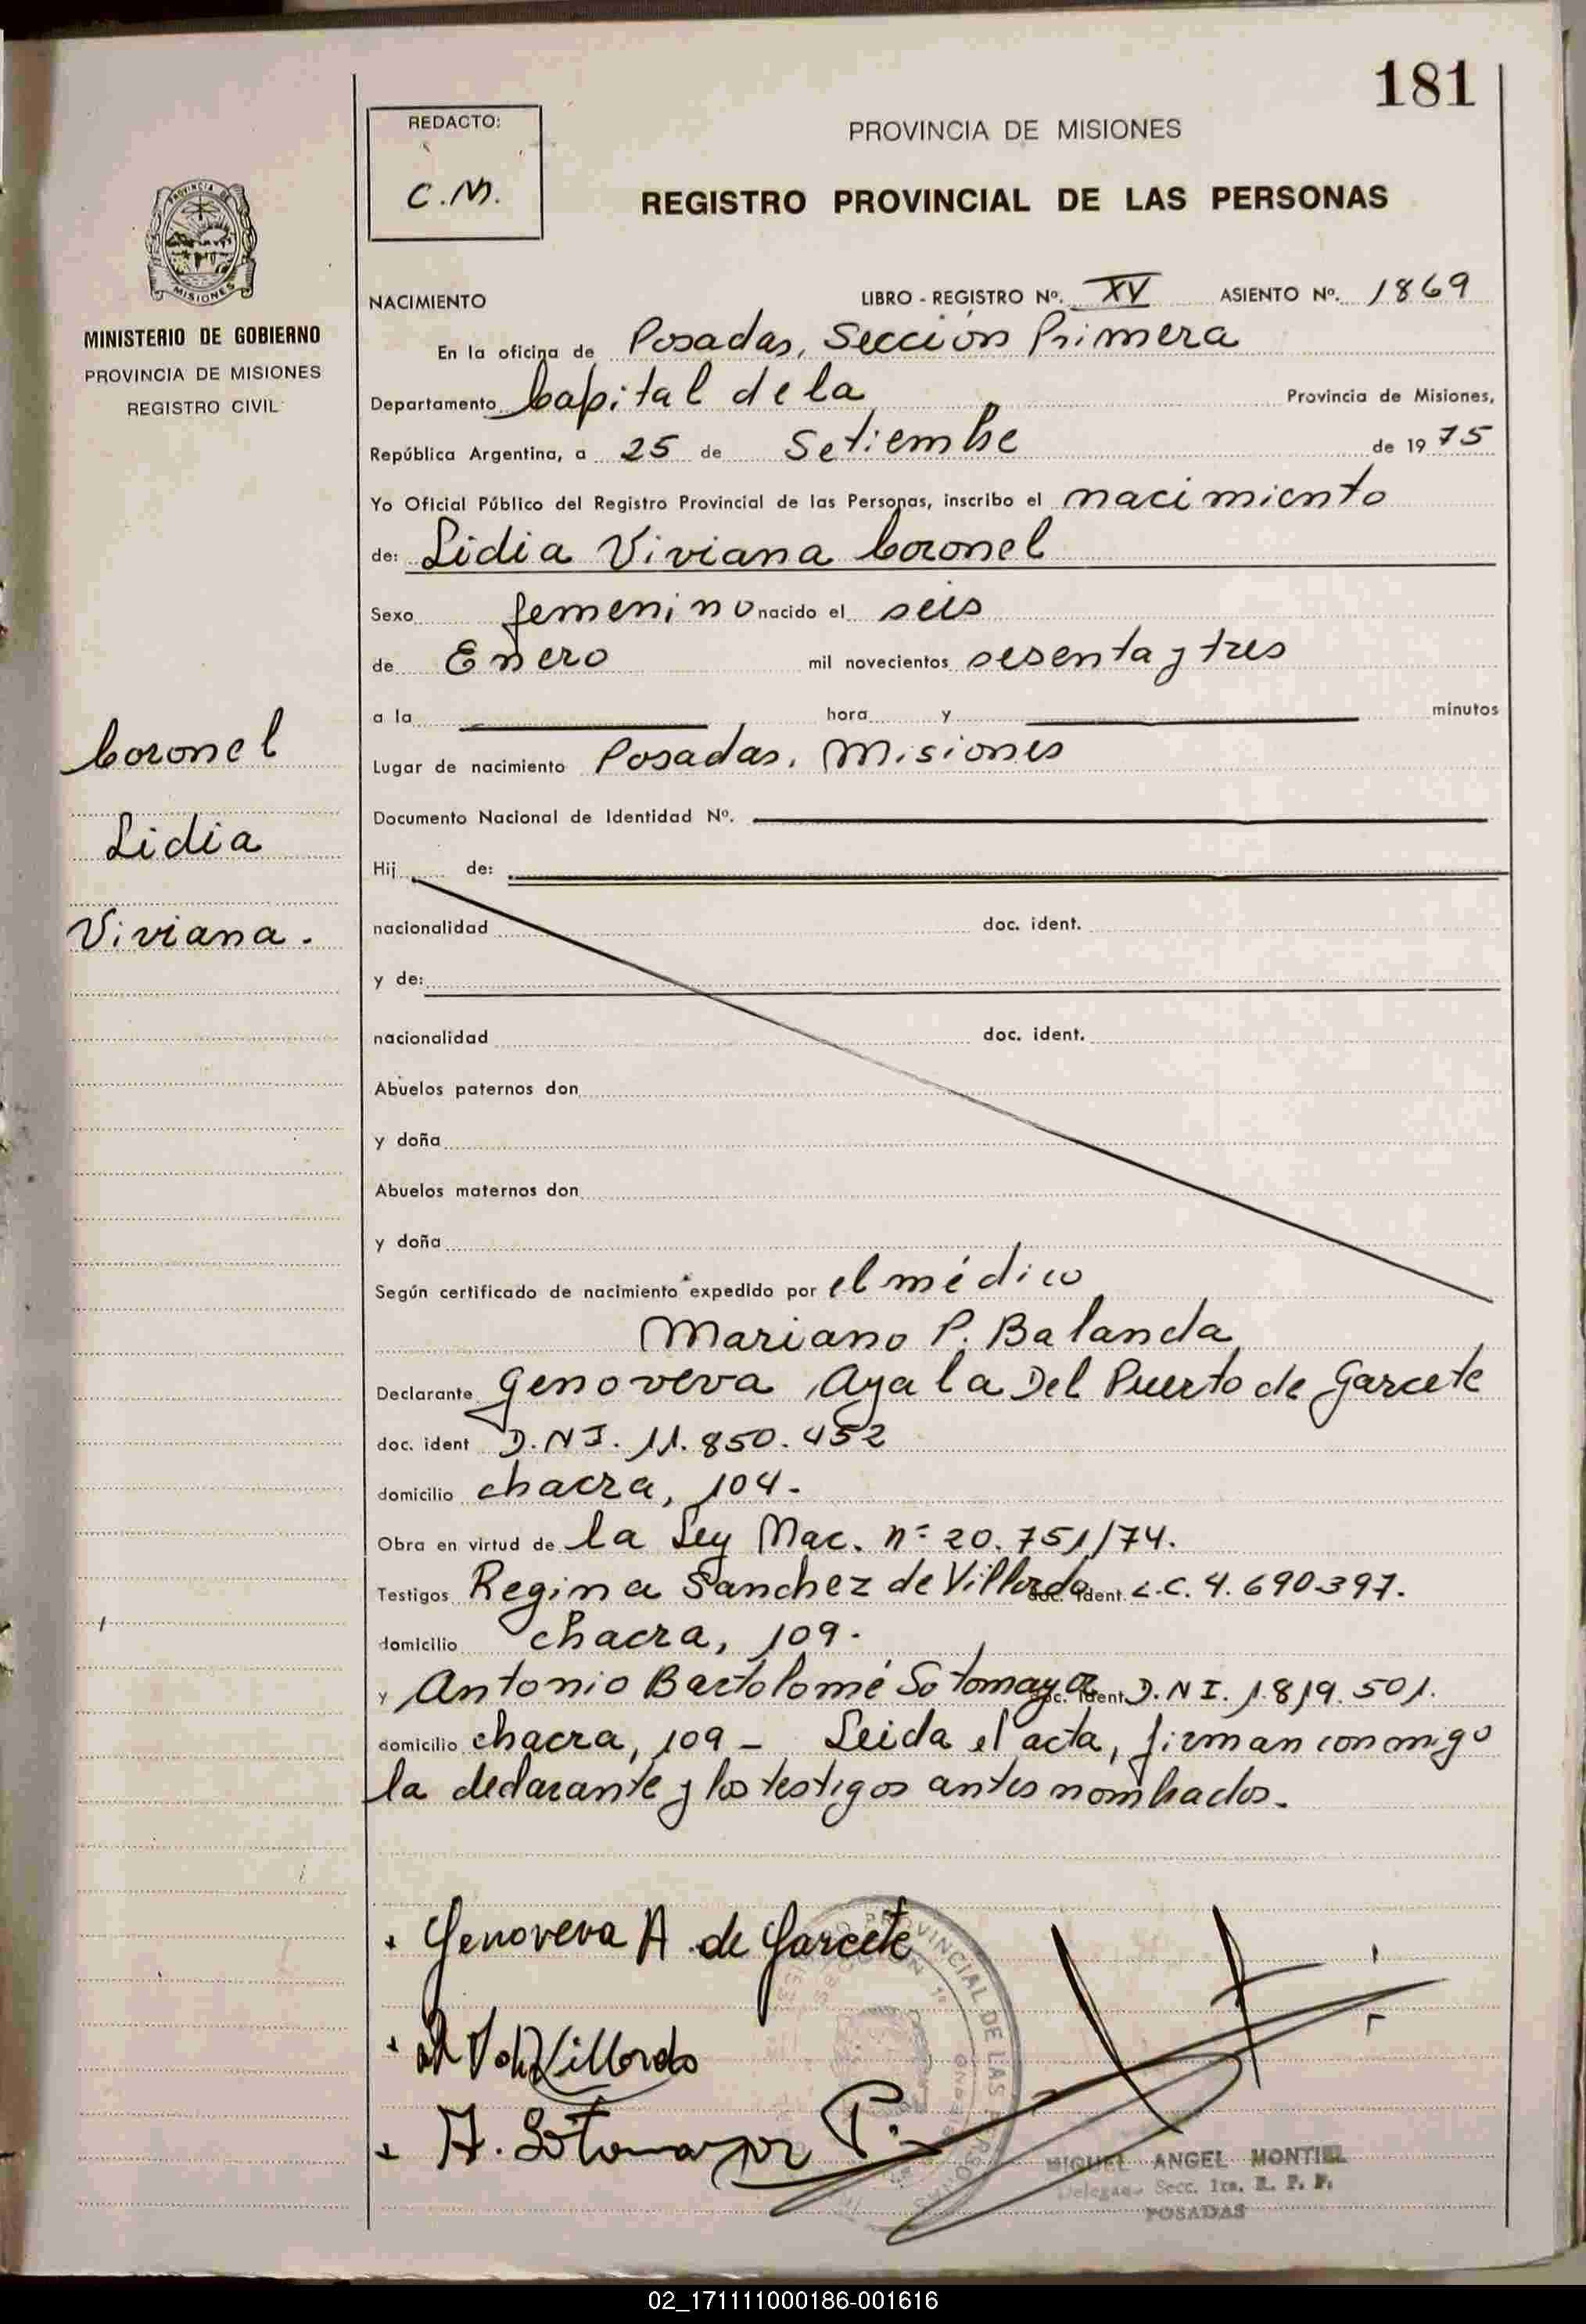 181
REDACTO:
C.M.
PROVINCIA DE MISIONES
REGISTRO PROVINCIAL DE LAS PERSONAS
PROVINCIA DE
MISIONES
MINISTERIO DE GOBIERNO
PROVINCIA DE MISIONES
REGISTRO CIVIL
Coronel
Lidia
Viviana.
NACIMIENTO LIBRO - REGISTRO Nº. XV ASIENTO Nº. 1869
En la oficina de Posadas, Sección Primera
Departamento Capital de la Provincia de Misiones,
República Argentina, a 25 de Setiembre de 1975
Yo Oficial Público del Registro Provincial de las Personas, inscribo el nacimiento
de: Lidia Viviana Coronel
Sexo femenino nacido el seis
de Enero mil novecientos sesenta y tres
a la hora y minutos
Lugar de nacimiento Posadas, Misiones
Documento Nacional de Identidad Nº.
Hij de:
nacionalidad doc. ident.
y de:
nacionalidad doc. ident.
Abuelos paternos don
y doña
Abuelos maternos don
y doña
Según certificado de nacimiento expedido por el médico
Mariano P. Balanda
Declarante Genoveva Ayala Del Puerto de Garcete
doc. ident D.N.I. 11.850.452
domicilio chacra, 104.-
Obra en virtud de la Ley Nac. nº 20.751/74.
Testigos Regina Sanchez de Villordo doc. ident. L.C. 4.690397.
domicilio chacra, 109.-
y Antonio Bartolomé Sotomayor doc. ident D.N.I. 1.819.501.
domicilio chacra, 109 - Leida el acta, firman conmigo
la declarante y los testigos antes nombrados.
Genoveva A. de Garcete
Villordo
A. Sotomayor P.
REGISTRO PROVINCIAL DE LAS PERSONAS
MIGUEL ANGEL MONTIEL
Delegado Secc. 1ra. R. P. P.
POSADAS
02_171111000186-001616